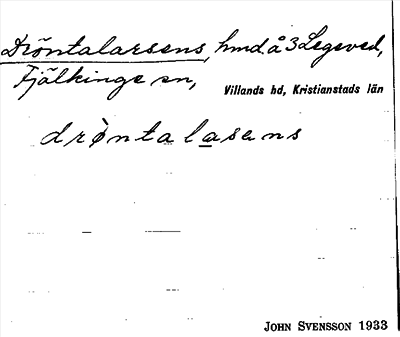 Dröntalarsens, hmd. å 3 Legeved,
Fjälkinge sn,
Villands hd, Kristianstads län
dröntalasens
JOHN SVENSSON 1933